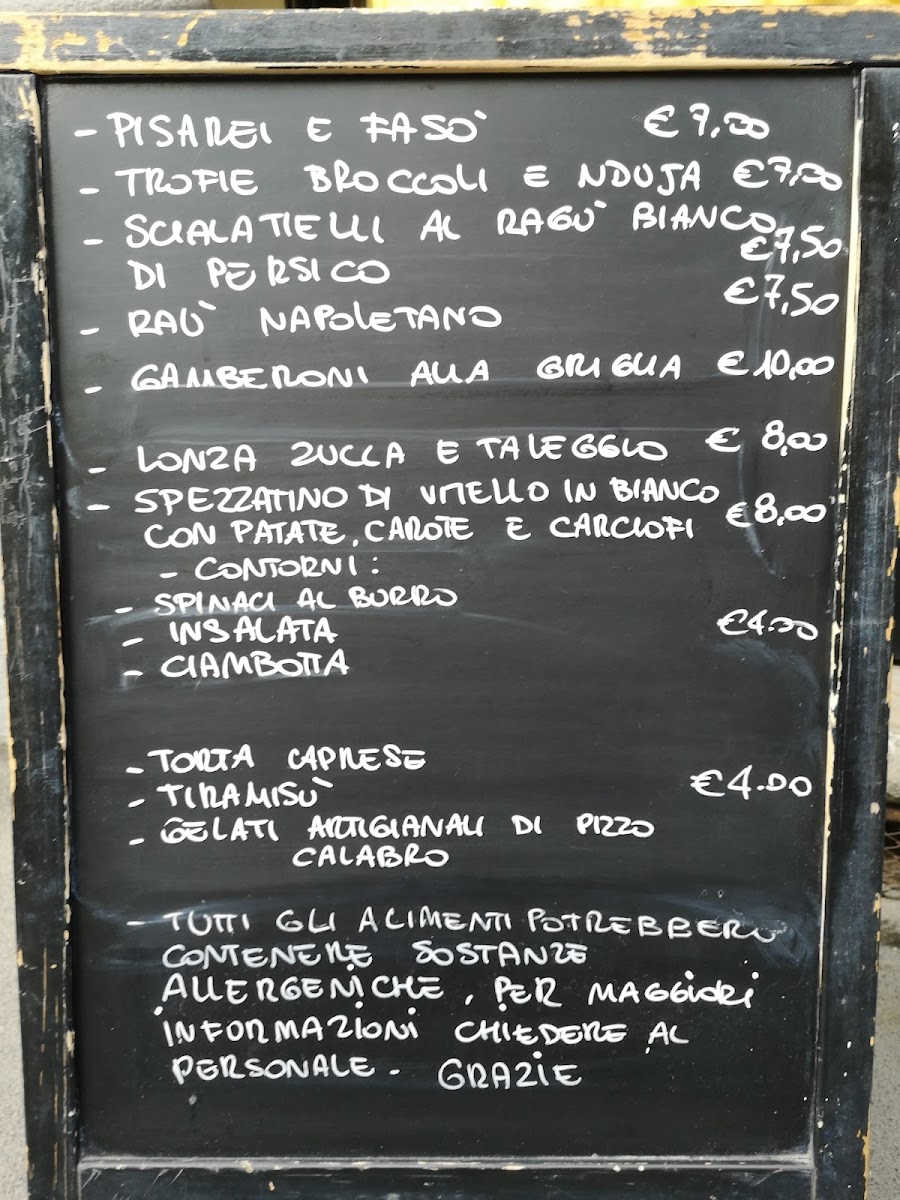 - PISAREI E FASO' € 7,00
- TROFIE BROCCOLI E NDUJA €7,00
- SCIALATIELLI AL RAGU' BIANCO
DI PERSICO €7,50
- RAU' NAPOLETANO €7,50
- GAMBERONI ALLA GRIGLIA € 10,00
- LONZA ZUCCA E TALEGGIO € 8,00
- SPEZZATINO DI VITELLO IN BIANCO
CON PATATE, CAROTE E CARCIOFI €8,00
- CONTORNI:
- SPINACI AL BURRO
- INSALATA €4.00
- CIAMBOTTA
- TORTA CAPRESE
- TIRAMISU' €4.00
- GELATI ARTIGIANALI DI PIZZO
CALABRO
- TUTTI GLI ALIMENTI POTREBBERO
CONTENERE SOSTANZE
ALLERGENICHE, PER MAGGIORI
INFORMAZIONI CHIEDERE AL
PERSONALE - GRAZIE